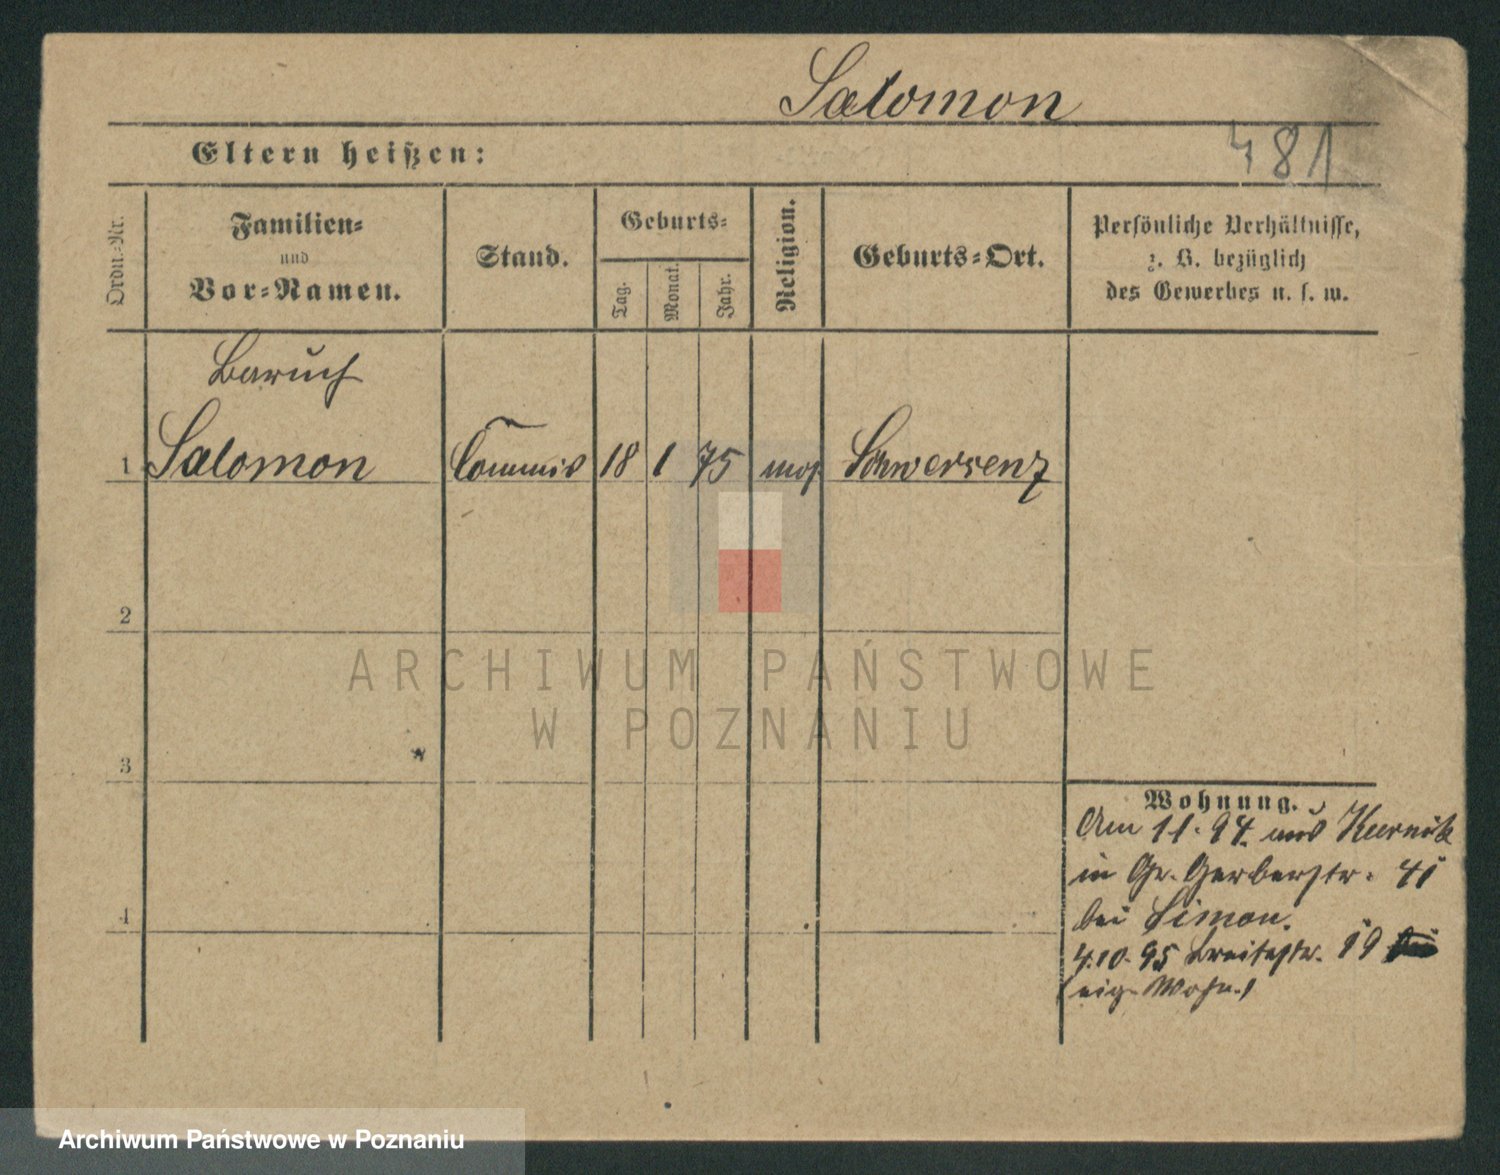 Salomon
Eltern heißen:
481
Ordn.-Nr.
Familien-
und
Vor-Namen.
Stand.
Geburts-
Tag.
Monat.
Jahr.
Religion.
Geburts-Ort.
Persönliche Verhältnisse,
z. B. bezüglich
des Gewerbes u. s. w.
Baruch
1 Salomon Commis 18 1 75 mos Schwersenz
2
ARCHIWUM PAŃSTWOWE
W POZNANIU
3
Wohnung.
Am 11. 94. aus Kurnik
in Gr. Gerberstr. 41
bei Simon.
4
4.10.95 Breitestr. 19
(eig. Wohn.)
Archiwum Państwowe w Poznaniu